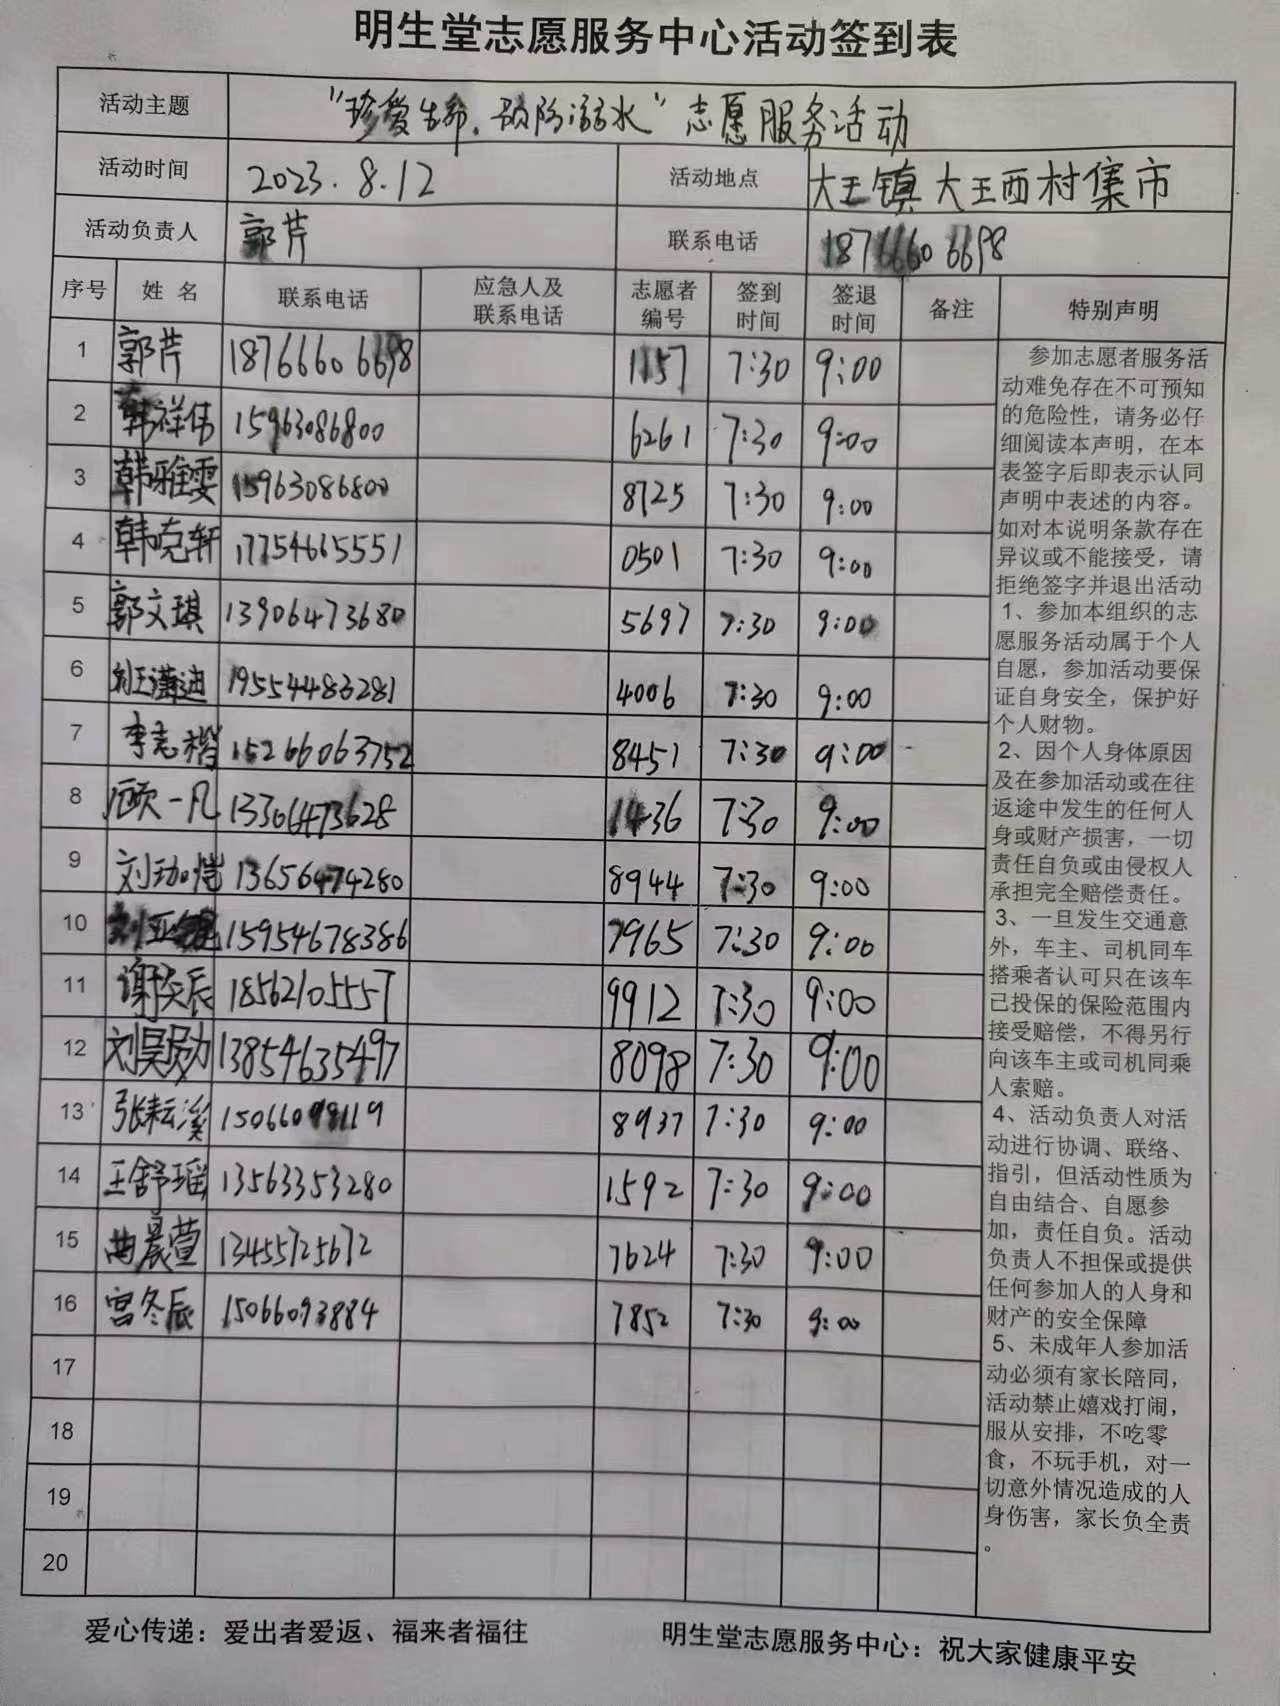 明生堂志愿服务中心活动签到表
活动主题 “珍爱生命.预防溺水”志愿服务活动
活动时间 2023.8.12 活动地点 大王镇大王西村集市
活动负责人 郭芹 联系电话 18766606698
序号 姓名 联系电话 应急人及联系电话 志愿者编号 签到时间 签退时间 备注 特别声明
1 郭芹 18766606698 1157 7:30 9:00
2 韩祥伟 15963086800 6261 7:30 9:00
3 韩雅雯 15963086800 8725 7:30 9:00
4 韩尧轩 17754665551 0501 7:30 9:00
5 郭文琪 13906473680 5697 7:30 9:00
6 潇迪 19554483281 4006 7:30 9:00
7 李志楷 15266063752 8451 7:30 9:00
8 顾一凡 13306473628 1436 7:30 9:00
9 刘珈恺 13656474280 8944 7:30 9:00
10 刘亚 15954678386 7965 7:30 9:00
11 谢奕辰 18562105557 9912 7:30 9:00
12 刘昊勋 13854635497 8098 7:30 9:00
13 张耘溪 15066098119 8937 7:30 9:00
14 王舒瑶 13563353280 1592 7:30 9:00
15 曲晨萱 13455725672 7624 7:30 9:00
16 宫冬辰 15066093884 7852 7:30 9:00
17
18
19
20
参加志愿者服务活
动难免存在不可预知
的危险性，请务必仔
细阅读本声明，在本
表签字后即表示认同
声明中表述的内容。
如对本说明条款存在
异议或不能接受，请
拒绝签字并退出活动
1、参加本组织的志
愿服务活动属于个人
自愿，参加活动要保
证自身安全，保护好
个人财物。
2、因个人身体原因
及在参加活动或在往
返途中发生的任何人
身或财产损害，一切
责任自负或由侵权人
承担完全赔偿责任。
3、一旦发生交通意
外，车主、司机同车
搭乘者认可只在该车
已投保的保险范围内
接受赔偿，不得另行
向该车主或司机同乘
人索赔。
4、活动负责人对活
动进行协调、联络、
指引，但活动性质为
自由结合、自愿参
加，责任自负。活动
负责人不担保或提供
任何参加人的人身和
财产的安全保障
5、未成年人参加活
动必须有家长陪同，
活动禁止嬉戏打闹，
服从安排，不吃零
食，不玩手机，对一
切意外情况造成的人
身伤害，家长负全责
。
爱心传递：爱出者爱返、福来者福往 明生堂志愿服务中心：祝大家健康平安